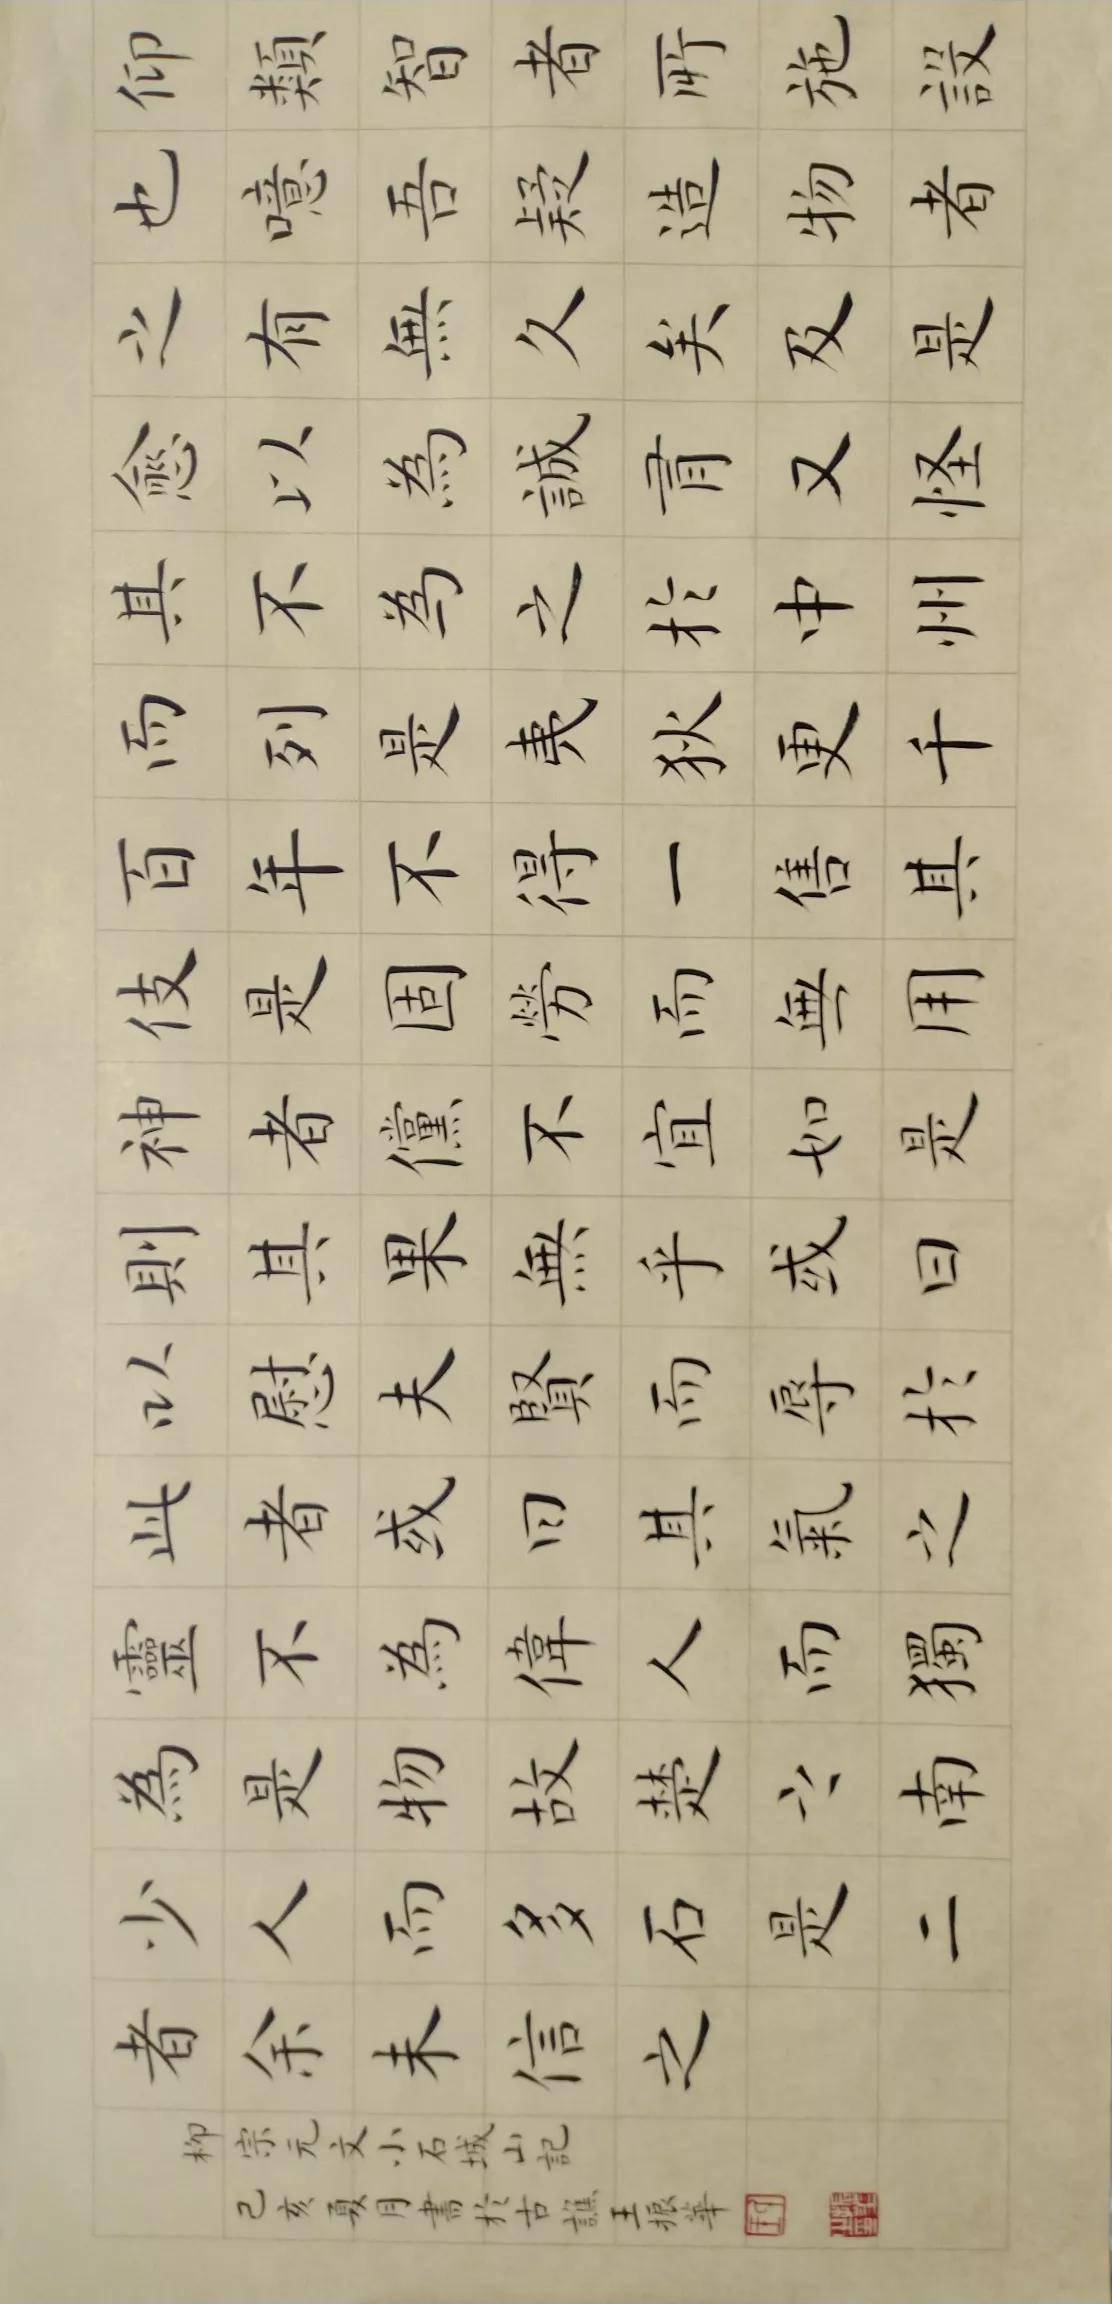 仰類智者所施設
也噫吾疑造物者
之有無久矣及是
愈以為誠有又怪
其不為之於中州
而列是夷狄更千
百年不得一售其
伎是固勞而無用
神者儻不宜如是
則其果無乎或曰
以慰夫賢而辱於
此者或曰其氣之
靈不為偉人而獨
為是物故楚之南
少人而多石是二
者余未信之
柳宗元文小石城山記
己亥夏月書於古譙王振華